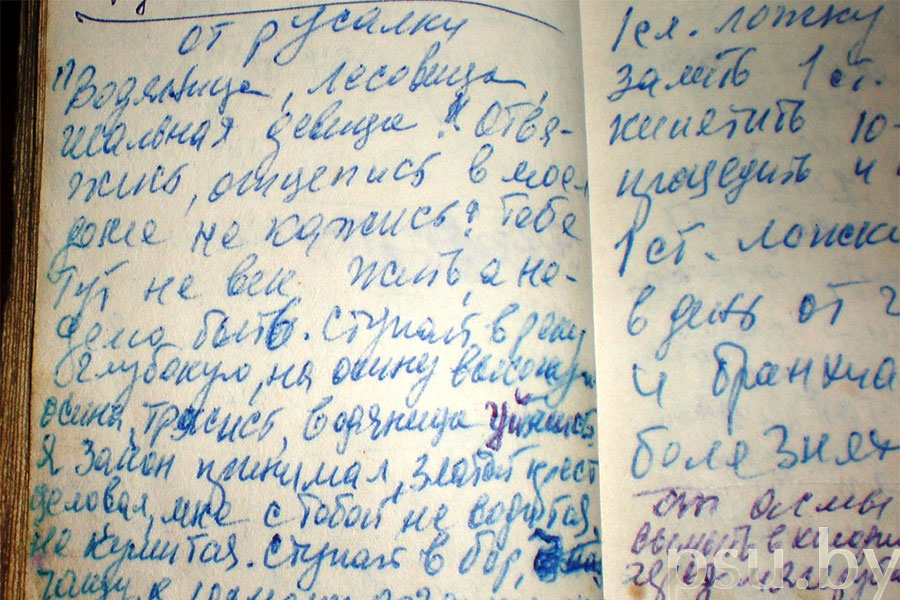 от русалки
1) Водяница, лесовица,
шальная девица! Отвя-
жись, отцепись в моем
доме не кажись! Тебе
тут не век жить, а не-
делю быть. Ступай в реку
глубокую, на осину высокую
осина, трясись, водяница уймись
Я закон принимал, златой крест
целовал, мне с тобой не водится,
не кумится. Ступай в бор,
чащу, к
1 ст. ложку
залить 1 ст.
кипятить 10-
процедить и
1 ст. ложки
в день от
и бронхиа
болезнях
от астмы
psu.by